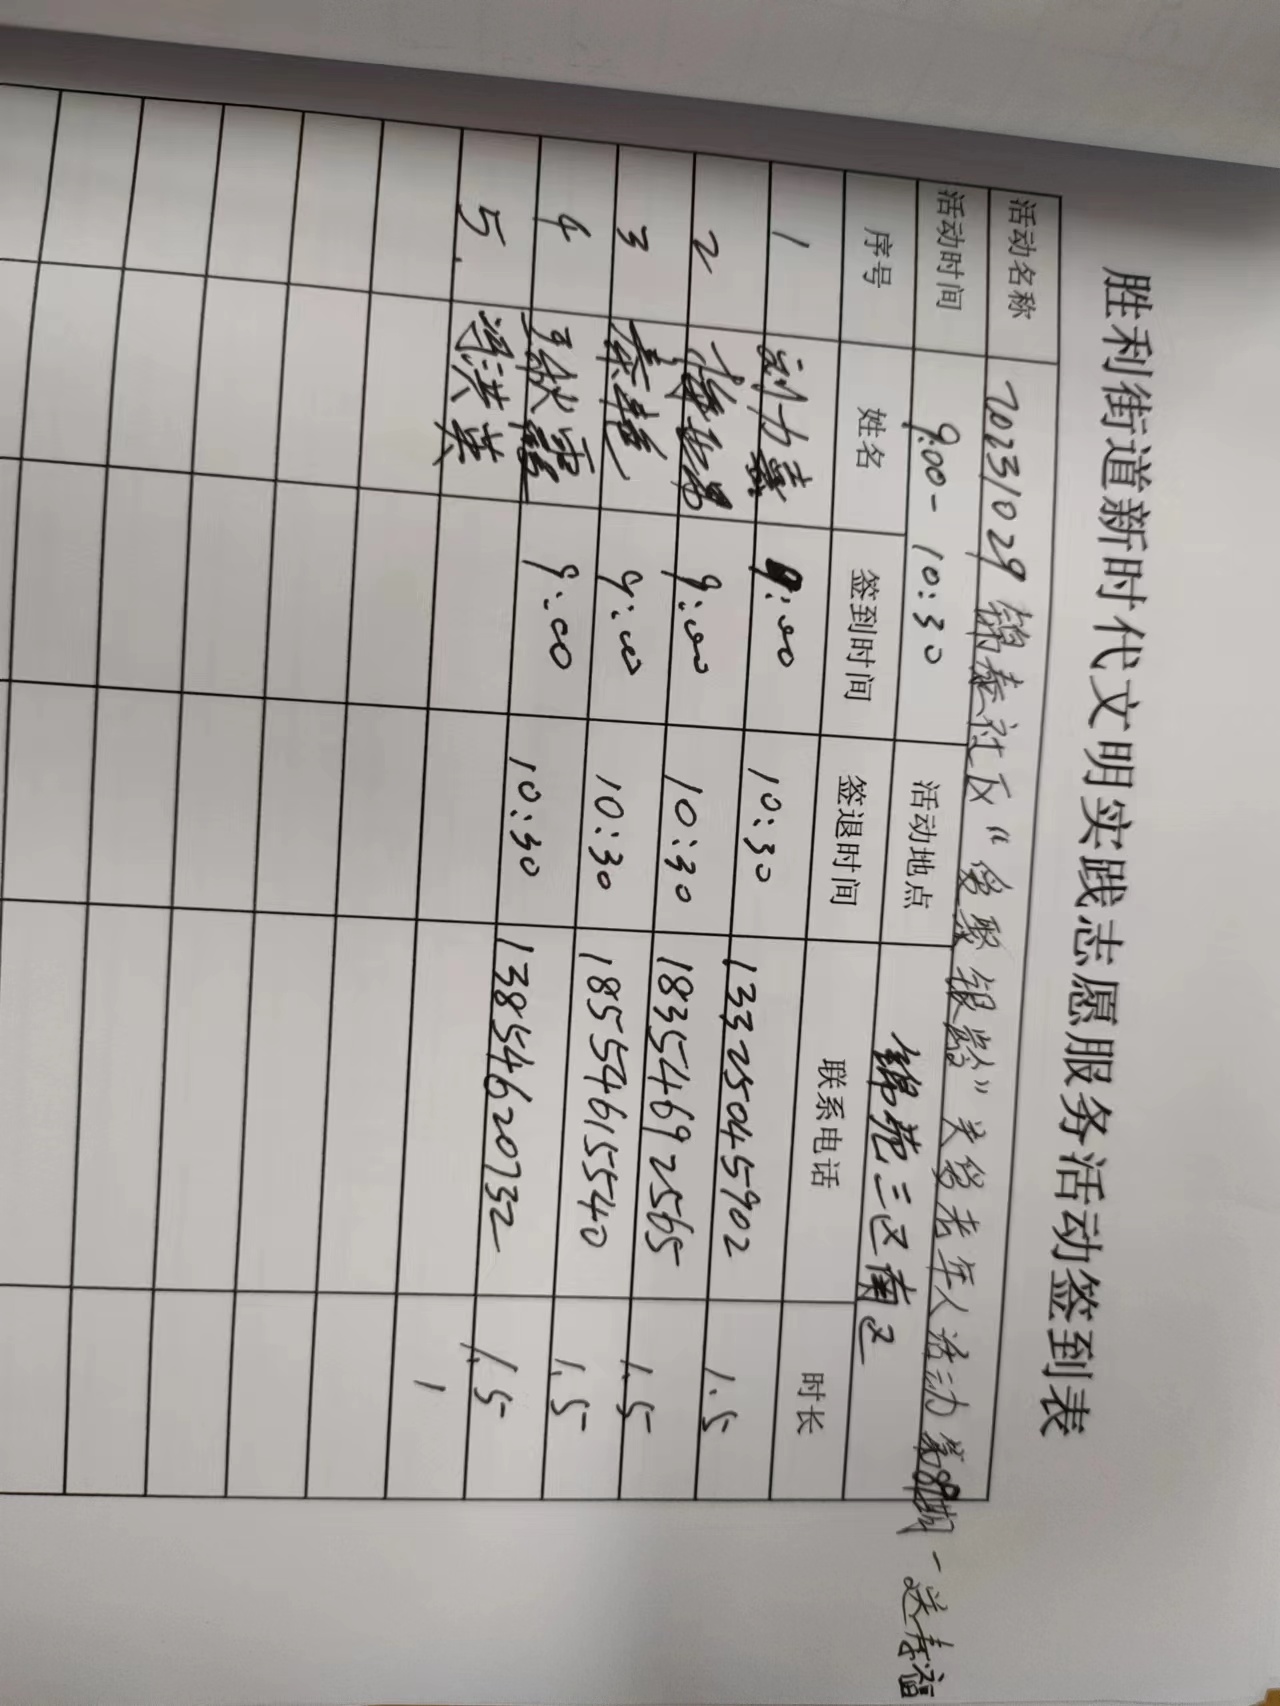 胜利街道新时代文明实践志愿服务活动签到表
活动名称 20231029 锦泰社区“爱聚银龄”关爱老年人活动 第 期-送春福
活动时间 9:00-10:30 活动地点 锦苑三区南区
序号 姓名 签到时间 签退时间 联系电话 时长
1 刘力嘉 9:00 10:30 13325045902 1.5
2 9:00 10:30 18354692565 1.5
3 秦艳 9:00 10:30 18554615540 1.5
4 9:00 10:30 13854620732 1.5
5. 冯洪英 1